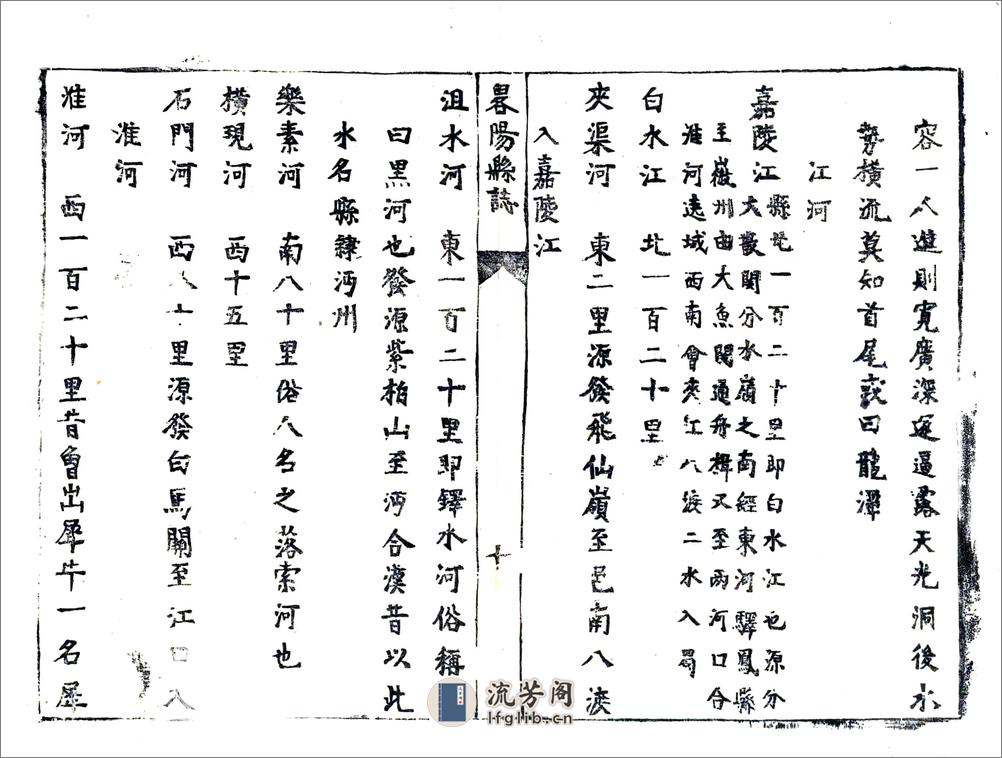 容一人進則寬廣深邃逼露天光洞後水
勢橫流莫知首尾或曰龍潭
江河
嘉陵江
縣北一百二十里即白水江也源分
大散關分水嶺之南經東河驛鳳縣
至徽州由大魚關通舟楫又至兩河口合
淮河遶城西南會夾江八渡二水入蜀
白水江 北一百二十里
夾渠河 東二里源發飛仙嶺至邑南八渡
入嘉陵江
畧陽縣誌
十
沮水河 東一百二十里即鐸水河俗稱
曰黑河也發源紫柏山至沔合漢昔以此
水名縣隸沔州
樂素河 南八十里俗人名之落索河也
橫現河 西十五里
石門河 西八十里源發白馬關至江口入
淮河
淮河 西一百二十里昔曾出犀牛一名犀
流芳阁
lfglib.cn